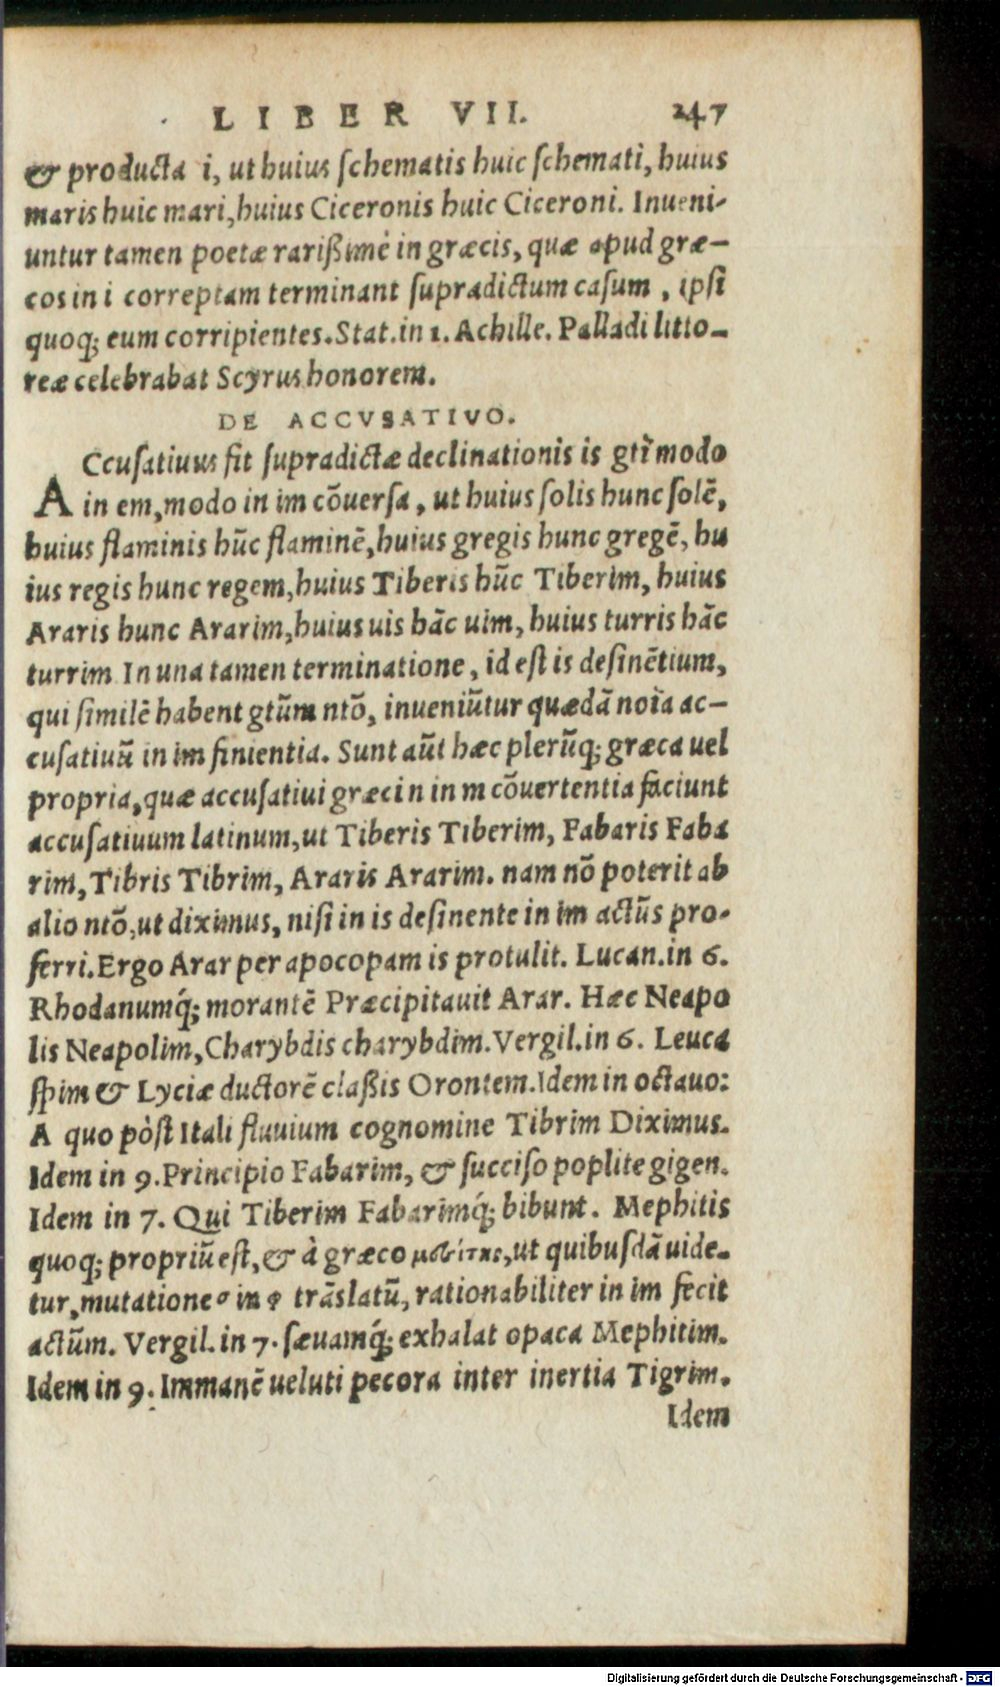 LIBER VII. 247
& producta i, ut huius ſchematis huic ſchemati, huius
maris huic mari, huius Ciceronis huic Ciceroni. Inueni-
untur tamen poetæ rarißimè in græcis, quæ apud græ-
cos in i correptam terminant ſupradictum caſum, ipſi
quoq; eum corripientes. Stat. in 1. Achille. Palladi litto-
reæ celebrabat Scyrus honorem.
DE ACCVSATIVO.
ACcuſatiuus fit ſupradictæ declinationis is gtĩ modo
in em, modo in im cõuerſa, ut huius ſolis hunc ſolẽ,
huius flaminis hũc flaminẽ, huius gregis hunc gregẽ, hu
ius regis hunc regem, huius Tiberis hũc Tiberim, huius
Araris hunc Ararim, huius uis hãc uim, huius turris hãc
turrim In una tamen terminatione, id eſt is deſinẽtium,
qui ſimilẽ habent gtũm ntõ, inueniũtur quædã noĩa ac-
cuſatiuũ in im finientia. Sunt aũt hæc plerũq; græca uel
propria, quæ accuſatiui græci n in m cõuertentia faciunt
accuſatiuum latinum, ut Tiberis Tiberim, Fabaris Faba
rim, Tibris Tibrim, Araris Ararim. nam nõ poterit ab
alio ntõ, ut diximus, niſi in is deſinente in im actũs pro-
ferri. Ergo Arar per apocopam is protulit. Lucan. in 6.
Rhodanumq́; morantẽ Præcipitauit Arar. Hæc Neapo
lis Neapolim, Charybdis charybdim. Vergil. in 6. Leuca
ſpim & Lyciæ ductorẽ claßis Orontem. Idem in octauo:
A quo pòſt Itali fluuium cognomine Tibrim Diximus.
Idem in 9. Principio Fabarim, & ſucciſo poplite gigen.
Idem in 7. Qui Tiberim Fabarimq́; bibunt. Mephitis
quoq; propriũ eſt, & à græco ut quibuſdã uide-
tur, mutatione σ in φ trãslatũ, rationabiliter in im fecit
actũm. Vergil. in 7. ſæuamq́; exhalat opaca Mephitim.
Idem in 9. Immanẽ ueluti pecora inter inertia Tigrim.
Idem
Digitalisierung gefördert durch die Deutsche Forschungsgemeinschaft - DFG